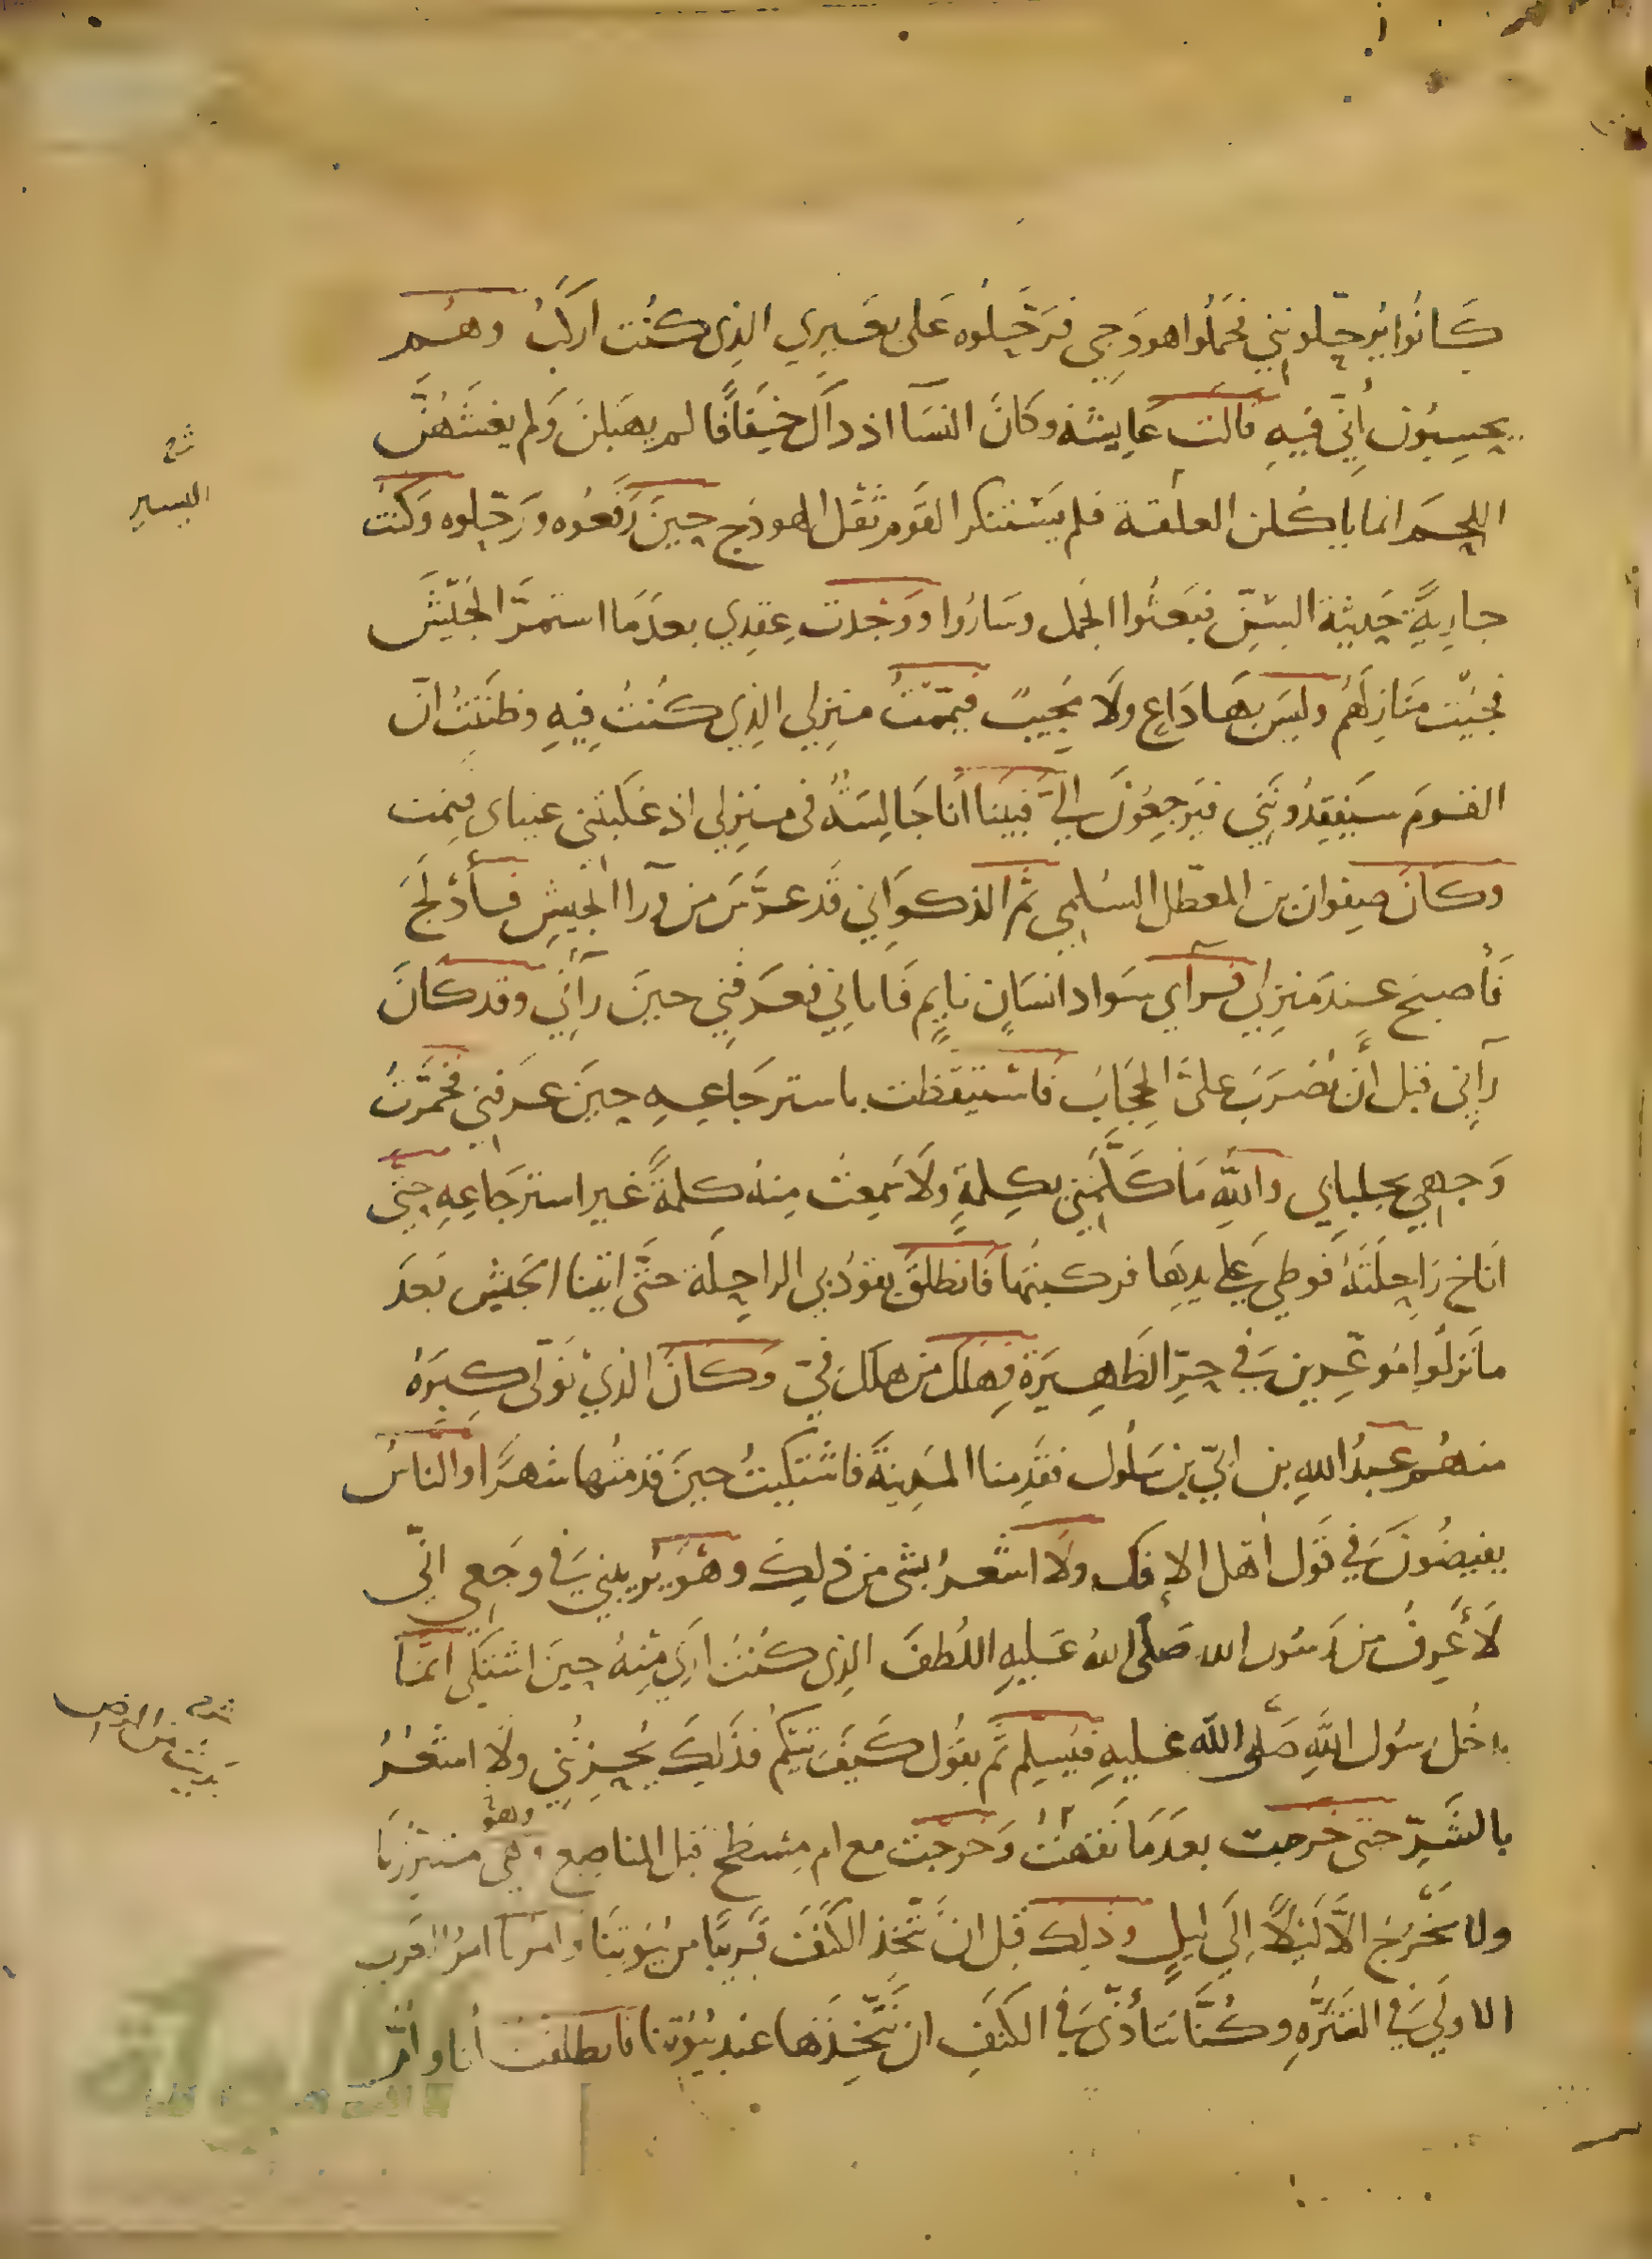 كَانُوا يُرَحِّلُونني فحَمَلُوا هودَجي فرَحَّلُوه عَلى بعَيري الذِى كُنْت اركَبُ وهُم
يحسِبُون أَنّي فيهِ قالت عَايشة وكَانَ النسَآ اذ ذَاك خِفَافًا لم يهبَلنَ وَلم يغشَهُنَّ
اللحم انما ياكُلن العلقة فلم يَسْتنكر القَوم ثقْل الهودَج حِينَ رَفعُوه وَرَحّلوه وَكنت
جاريةً حَديثة السِّنِّ فبعَثُوا الجمل وسَارُوا ووَجَدت عِقدِي بعدَمَا استمرَّ الجَيْش
فجئت مَنازلَهُم وليسَ بهَا دَاعٍ ولَا مُجيبٌ فتيمّمْتُ منزلي الذِي كُنْتُ فيهِ وظنَنتُ انّ
القومَ سَيَفقِدُونَني فيَرجِعُونَ اليَّ فبَينَا انَا جَالِسَةٌ فى منزلي اذ غلَبتني عيناى فنِمت
وكَانَ صفوان بن المعَطّل السُلمي ثم الذكوَاني قَد عرَّسَ من ورآ الجيشِ فأدْلَجَ
فَأصبح عندَ منزلي فرآي سَوادَ انسَانٍ نايمٍ فَاتاني فعَرَفَني حينَ رآني وقد كَانَ
رآني قبل أن يُضرَبَ عليَّ الحِجَابُ فَاسْتيقَظت باسترجَاعِهِ حِينَ عرَفني فخمَّرتُ
وَجهي بجلبابي وَاللهِ مَا كَلَّمَني بكلمةٍ ولَا سَمعتُ مِنهُ كلمةً غير استرجَاعِهِ حتى
انَاخ رَاحِلَتَهُ فوطي على يدِهَا فركبتُهَا فَانطلقَ يقودُ بي الراحِلَة حتَّى اتَينا الجَيْش بَعدَ
مَا نَزلُوا مُوغِرِين في حرِّ الظَهِيرَةِ فهَلَكَ من هلكَ فيّ وَكانَ الذي تَوَلّى كبرَهُ
منهُم عبدُ اللهِ بن ابيّ بن سَلُول فقَدِمنا المَدِينَةَ فاشتَكيتُ حينَ قدمتُها شهرًا والنّاسُ
يفيضُونَ في قَول أهل الإفك ولَا اشعرُ بشى من ذلِكَ وهوَ يُريبُني في وجَعي انّي
لَا أعرِفُ من رَسُول الله صَلى اللهُ عَليهِ اللُطفَ الذِى كُنْتُ ارَي مِنْهُ حِينَ اشتكي انمَا
يدخُل رسُول اللهِ صَلَّى الله عليهِ فيُسلِم ثُم يقُول كَيفَ تِيكُم فذَلِكَ يُحزِنُني ولَا اشعُرُ
بالشَّرِّ حتى خرجت بعدَمَا نقَهْتُ وَخرجت مع ام مِسْطح قبل المناصِع وهي متبرّزنَا
وهو
ولا نخرُجُ الَّا لَيلًا اِلَى لَيلٍ وذلِكَ قبل ان نَتّخذ الكنُفَ قَريبًا من بيُوتِنَا وَامرنا امرُ العَرَب
الاولَي في التَنَزُّهِ وكُنّا نتَأذَّى في الكنُفِ ان نتَّخِذَها عند بُيُوتنا فَانطلَقْتُ أنا وامّ
اليسير